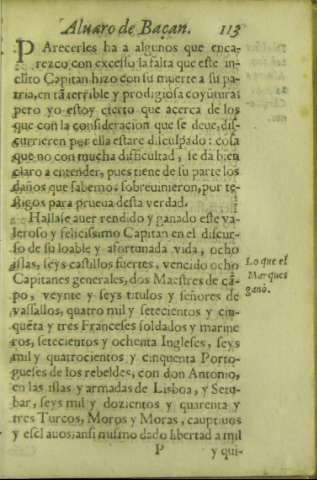 Aluaro de Baçan. 113
PArecerles ha a algunos que enca-
rezco con excesso la falta que este in-
clito Capitan hizo con su muerte a su pa-
tria, en tã terrible y prodigiosa coyūtura:
pero yo estoy cierto que acerca de los
que con la consideracion que se deue, dis-
currieren por ella estare disculpado: cosa
que no con mucha difficultad, se dà bien
claro a entender, pues tiene de su parte los
daños que sabemos sobreuinieron, por te-
stigos para prueua desta verdad.
Hallase auer rendido y ganado este va-
leroso y felicissimo Capitan en el discur-
so de su loable y afortunada vida, ocho
islas, seys castillos fuertes, vencido ocho
Capitanes generales, dos Maestres de cã-
po, veynte y seys titulos y señores de
vassallos, quatro mil y setecientos y cin-
quēta y tres Franceses soldados y marine
ros, setecientos y ochenta Ingleses, seys
mil y quatrocientos y cinquenta Porto-
gueses de los rebeldes, con don Antonio,
en las islas y armadas de Lisboa, y Setu-
bar, seys mil y dozientos y quarenta y
tres Turcos, Moros y Moras, cauptiuos
y esclauos: ansi mismo dado libertad a mil
P y qui-
Lo que el
Marques
ganò.